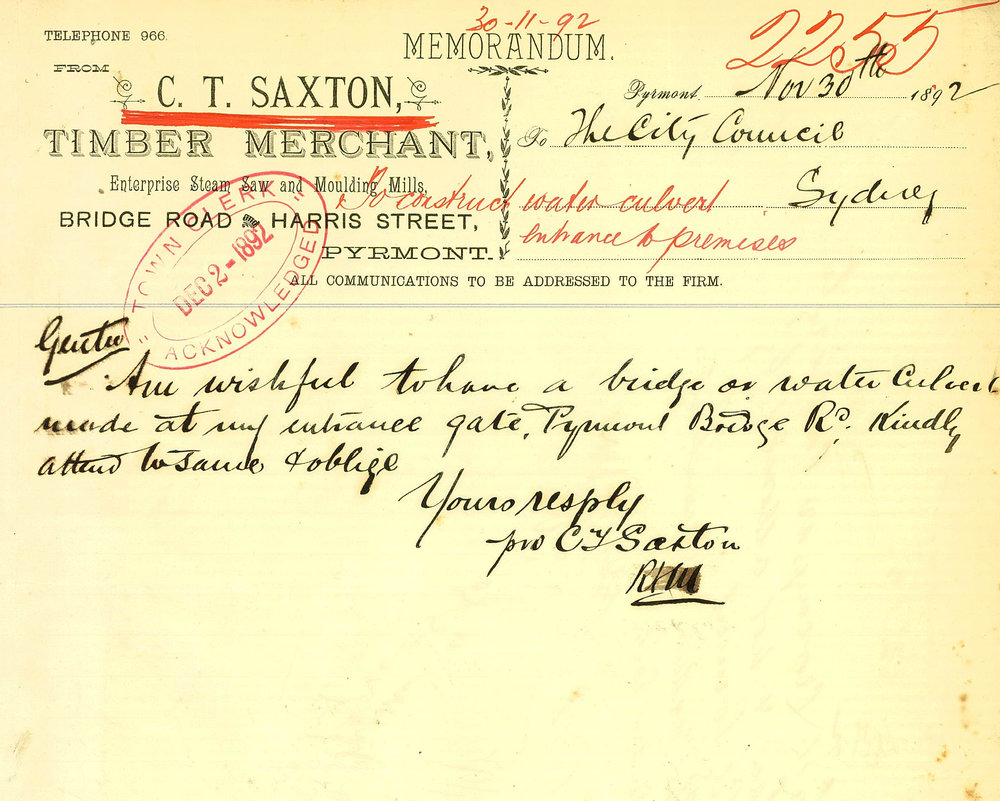 TELEPHONE 966.
30-11-92
MEMORANDUM.
2255
FROM
C. T. SAXTON,
TIMBER MERCHANT,
Enterprise Steam Saw and Moulding Mills,
BRIDGE ROAD & HARRIS STREET,
PYRMONT.
Pyrmont Nov 30th 1892
To The City Council
Sydney
To construct water culvert
entrance to premises
ALL COMMUNICATIONS TO BE ADDRESSED TO THE FIRM.
"TOWN CLERK"
DEC 2-1892
ACKNOWLEDGED
Gentn
Am wishful to have a bridge or water Culvert
made at my entrance gate, Pyrmont Bridge Rd. Kindly
attend to same & oblige
Yours resply
pro C T Saxton
RHM